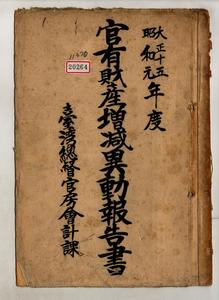 大正十五
昭和元
年度
官有財産増減異動報告書
臺湾総督官房會計課
20264